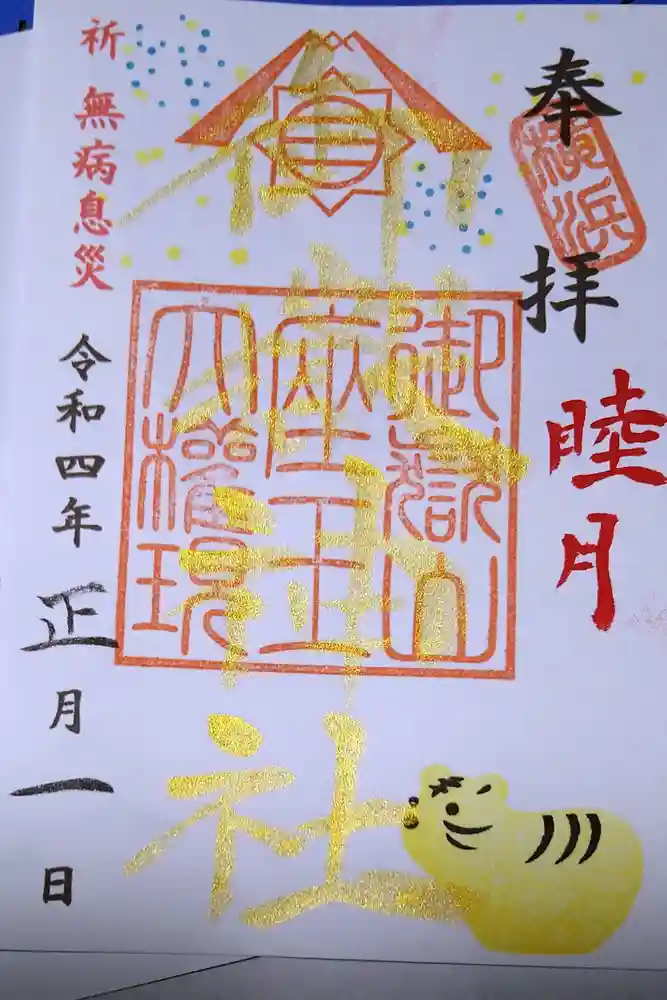 奉拝
横浜
睦月
御嶽神社
御嶽山
座王
大權現
祈 無病息災
令和四年正月一日